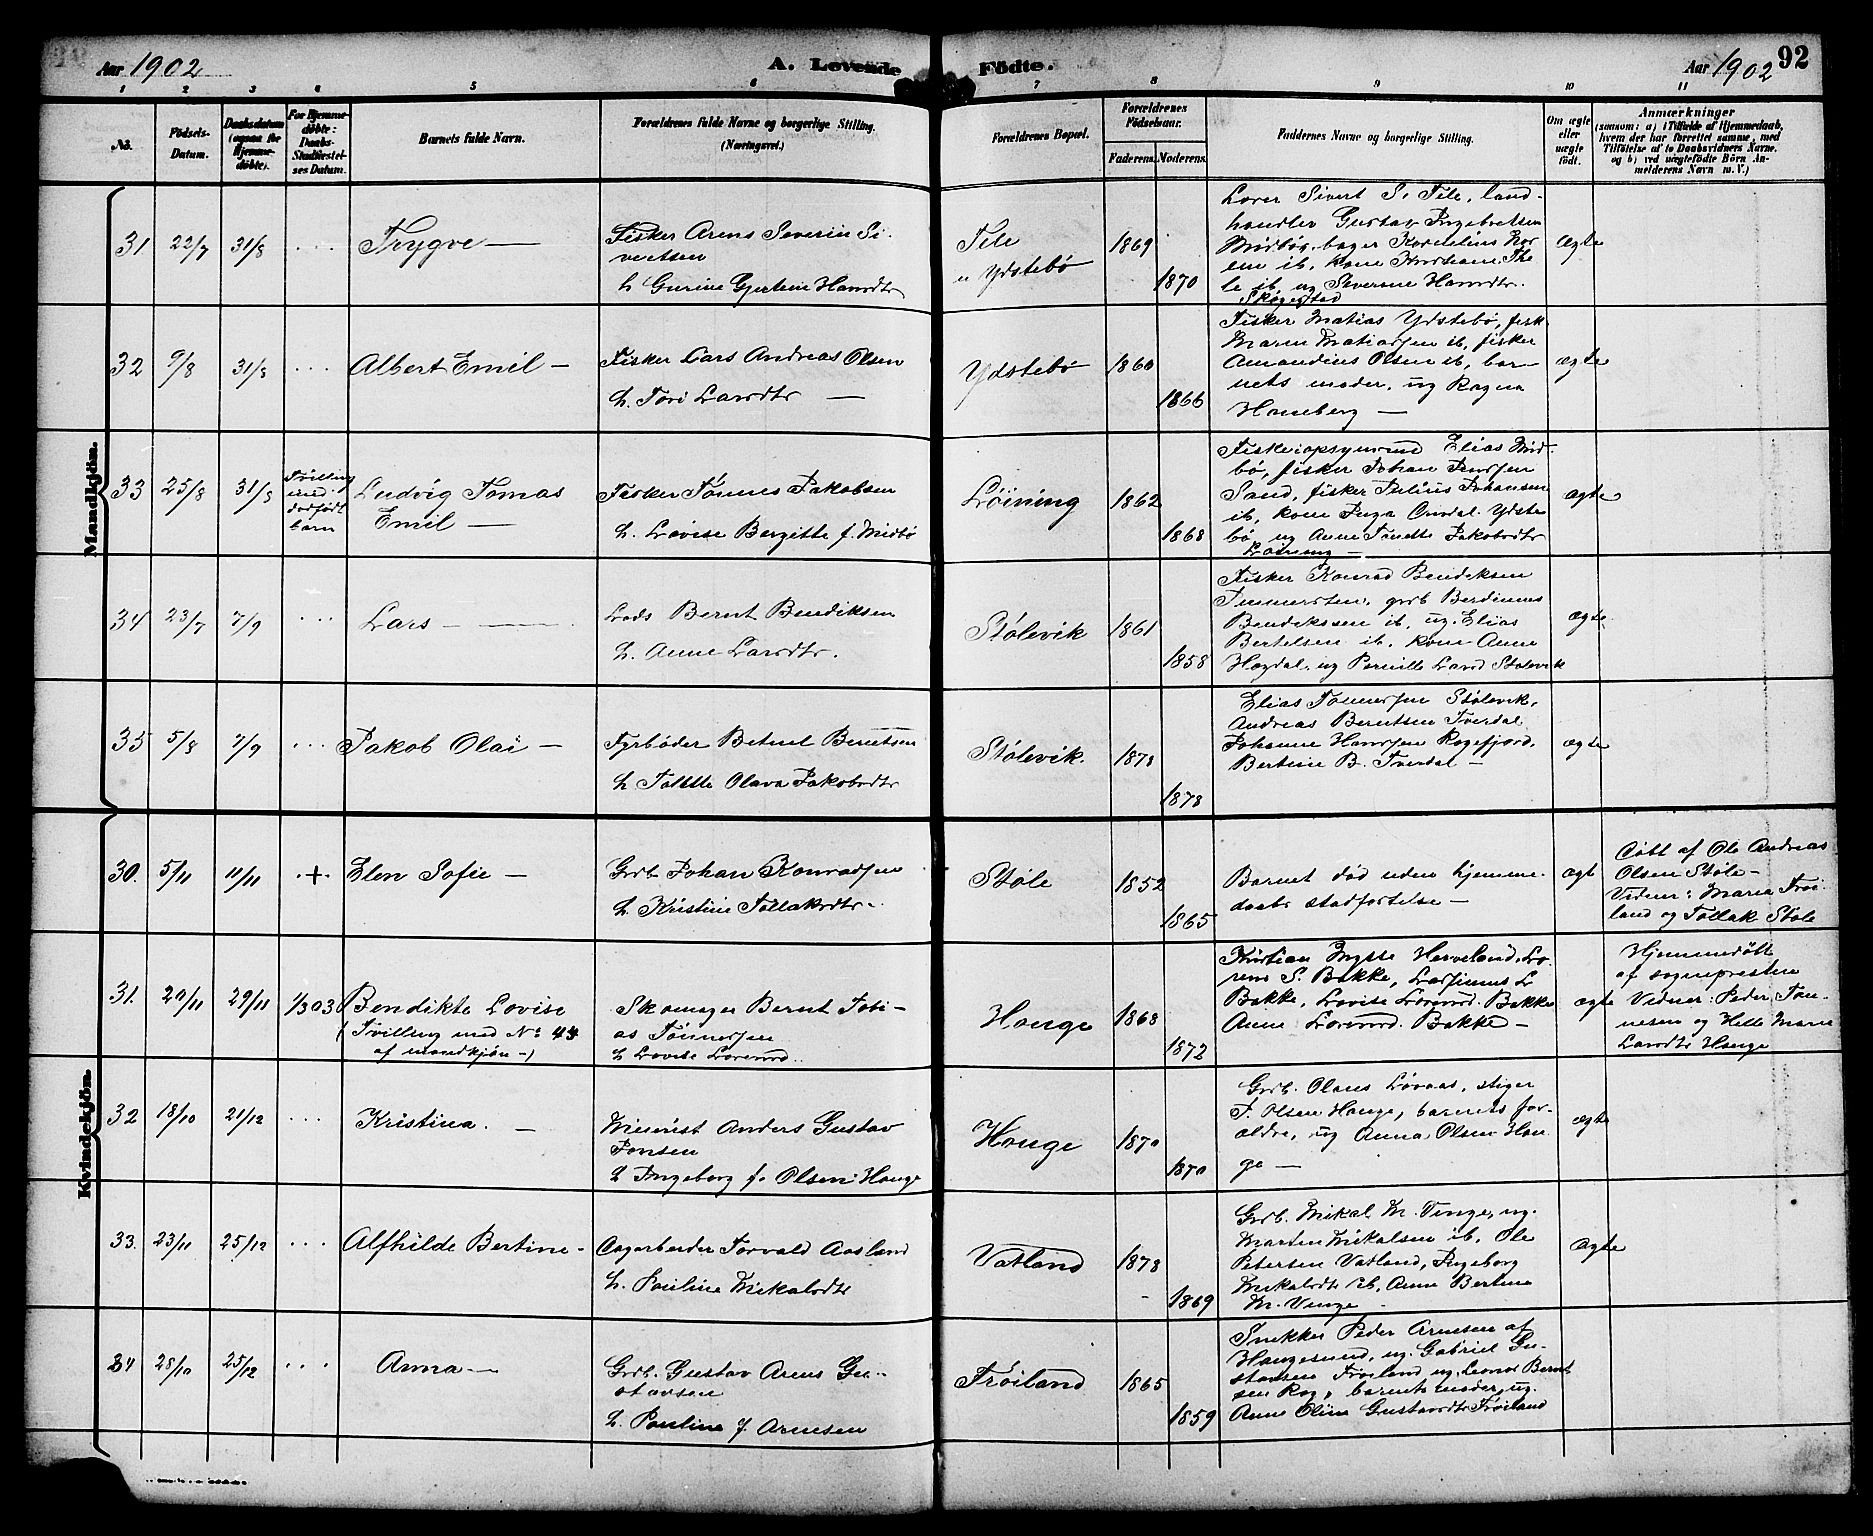 Aar 1902
A. Levende Födte.
Aar 1902
92
1 2 3 4 5 6 7 8 9 10 11
No.
Födsels-Datum.
Daabsdatum (ogsaa for Hjemmedöbte).
For Hjemmedöbte: Daabs-Stadfæstelses Datum.
Barnets fulde Navn.
Forældrenes fulde Navne og borgerlige Stilling.
(Næringsvei.)
Forældrenes Bopæl.
Forældrenes Födselsaar.
Faderens. Moderens.
Faddernes Navne og borgerlige Stilling.
Om ægte eller uægte födt.
Anmærkninger
(saasom: a) i Tilfælde af Hjemmedaab, hvem der har forrettet samme, med Tilföielse af to Daabsvidners Navne. og b) ved uægtefödte Börn Anmelderens Navn m. V.)
Mandkjön.
31. 22/7 31/8 . . . Trygve —
Fisker Arens Severin Si-
vertsen
h. Gurine Gjertine Hansdtr
Tele
" Ydstebø
1869
1870
Lærer Sivert S. Tele, land-
handler Gustav Ingebretsen
Midbø, bager Kornelius
em ib, kone Kristiane The-
le ib, og Severine Hansdtr.
Skogestad
ægte
32 9/8 31/8 . . . Albert Emil —
Fisker Lars Andreas Olsen
h. Tori Larsdtr —
Ydstebø
1860
1866
Fisker Matias Ydstebø, fisk.
Maren Matiassen ib, fisker
Amandius Olsen ib, bar-
nets moder, og Ragna
Haneberg —
ægte
33 25/8 31/8
Tvilling
med
dødfødt
barn
Ludvig Tomas
Emil —
Fisker Tønnes Jakobsen
h. Lovise Bergitte f. Midbø
Løining
1862
1868
Fiskeriopsynsmd Elias Mid-
bø, fisker Johan Jenssen
Sand, fisker Julius Johansen
ib, kone Inga Omdal Ydste
bø og Anne Tonette Jakobsdtr
Løining —
ægte
34 23/7 7/9 . . . Lars —
Lods Bernt Bendiksen
h. Anne Larsdtr.
Stølevik
1861
1858
Fisker Konrad Bendiksen
grb Berdinus
Bendikssen ib, og Elias
Bertelsen ib, kone Anne
Hægdal, og Pernille Larsd Stølevik
ægte
35 5/8 7/9 . . . Jakob Olai —
Fyrbøder Betuel Berntsen
h. Tolette Olava Jakobsdtr
Stølevik.
1878
Elias Tønnessen Stølevik,
Andreas Berntsen Tverdal
Johanne Hanssen Rægefjord,
Bertine B. Tverdal —
ægte
Kvindekjön.
30. 5/11 11/11 . + . Elen Sofie —
Grb. Johan Konradsen
h. Kristine Tollaksdtr.
Støle
1852
1865
Barnet død uden hjemme-
daabs stadfæstelse —
ægt
Døbt af Ole Andreas
Olsen Støle —
Vidner: Maria Frøi-
land og Tollak Støle
31. 20/11 29/11 1/3 03 Bendikte Lovise
(Tvilling med No 44
af mandkjøn —)
Skomager Bernt Tobi-
as Tønnessen
h Lovise Lorensd..
Hauge
1868
1872
Kristian Nysse Herveland, Lo-
rens S. Bakke, Lassinus L
Bakke, Lovise Lorensd. Bakke
Anne Lorensd. Bakke —
ægte
Hjemmedøbt
af sognepresten
Vidner: Peder Tøn-
nesen og Helle Marie
Larsdtr Hauge
32 18/10 21/12 . . . Kristina. —
Minerist Anders Gustav
Jonsen
h Ingeborg f. Olsen Hauge
Hauge
1870
1870
Grb. Olaus Løvaas, stiger
T. Olsen Hauge, barnets for-
ældre, og Anna Olsen Hau
ge —
ægte
33. 23/11 25/12 . . . Alfhilde Bertine —
Torvald Aasland
h. Pauline Mikalsdtr
Vatland
1878
1869
Grb. Mikal M. Vinge, og
Martin Mikalsen ib, Ole
Petersen Vatland, Ingeborg
Mikalsdtr ib, Anne Bertine
M. Vinge
ægte
34 28/10 25/12 . . . Anna —
Grb. Gustav Arens Gu-
stavsen
h. Pauline f. Arnesen
Frøiland
1865
1859
Snekker Peder Arnesen af
Haugesund, og Gabriel Gu-
stavsen Frøiland, og Leonor Bernt
sen Rog, barnets moder, og
Anne Oline Gustavsdtr Frøiland